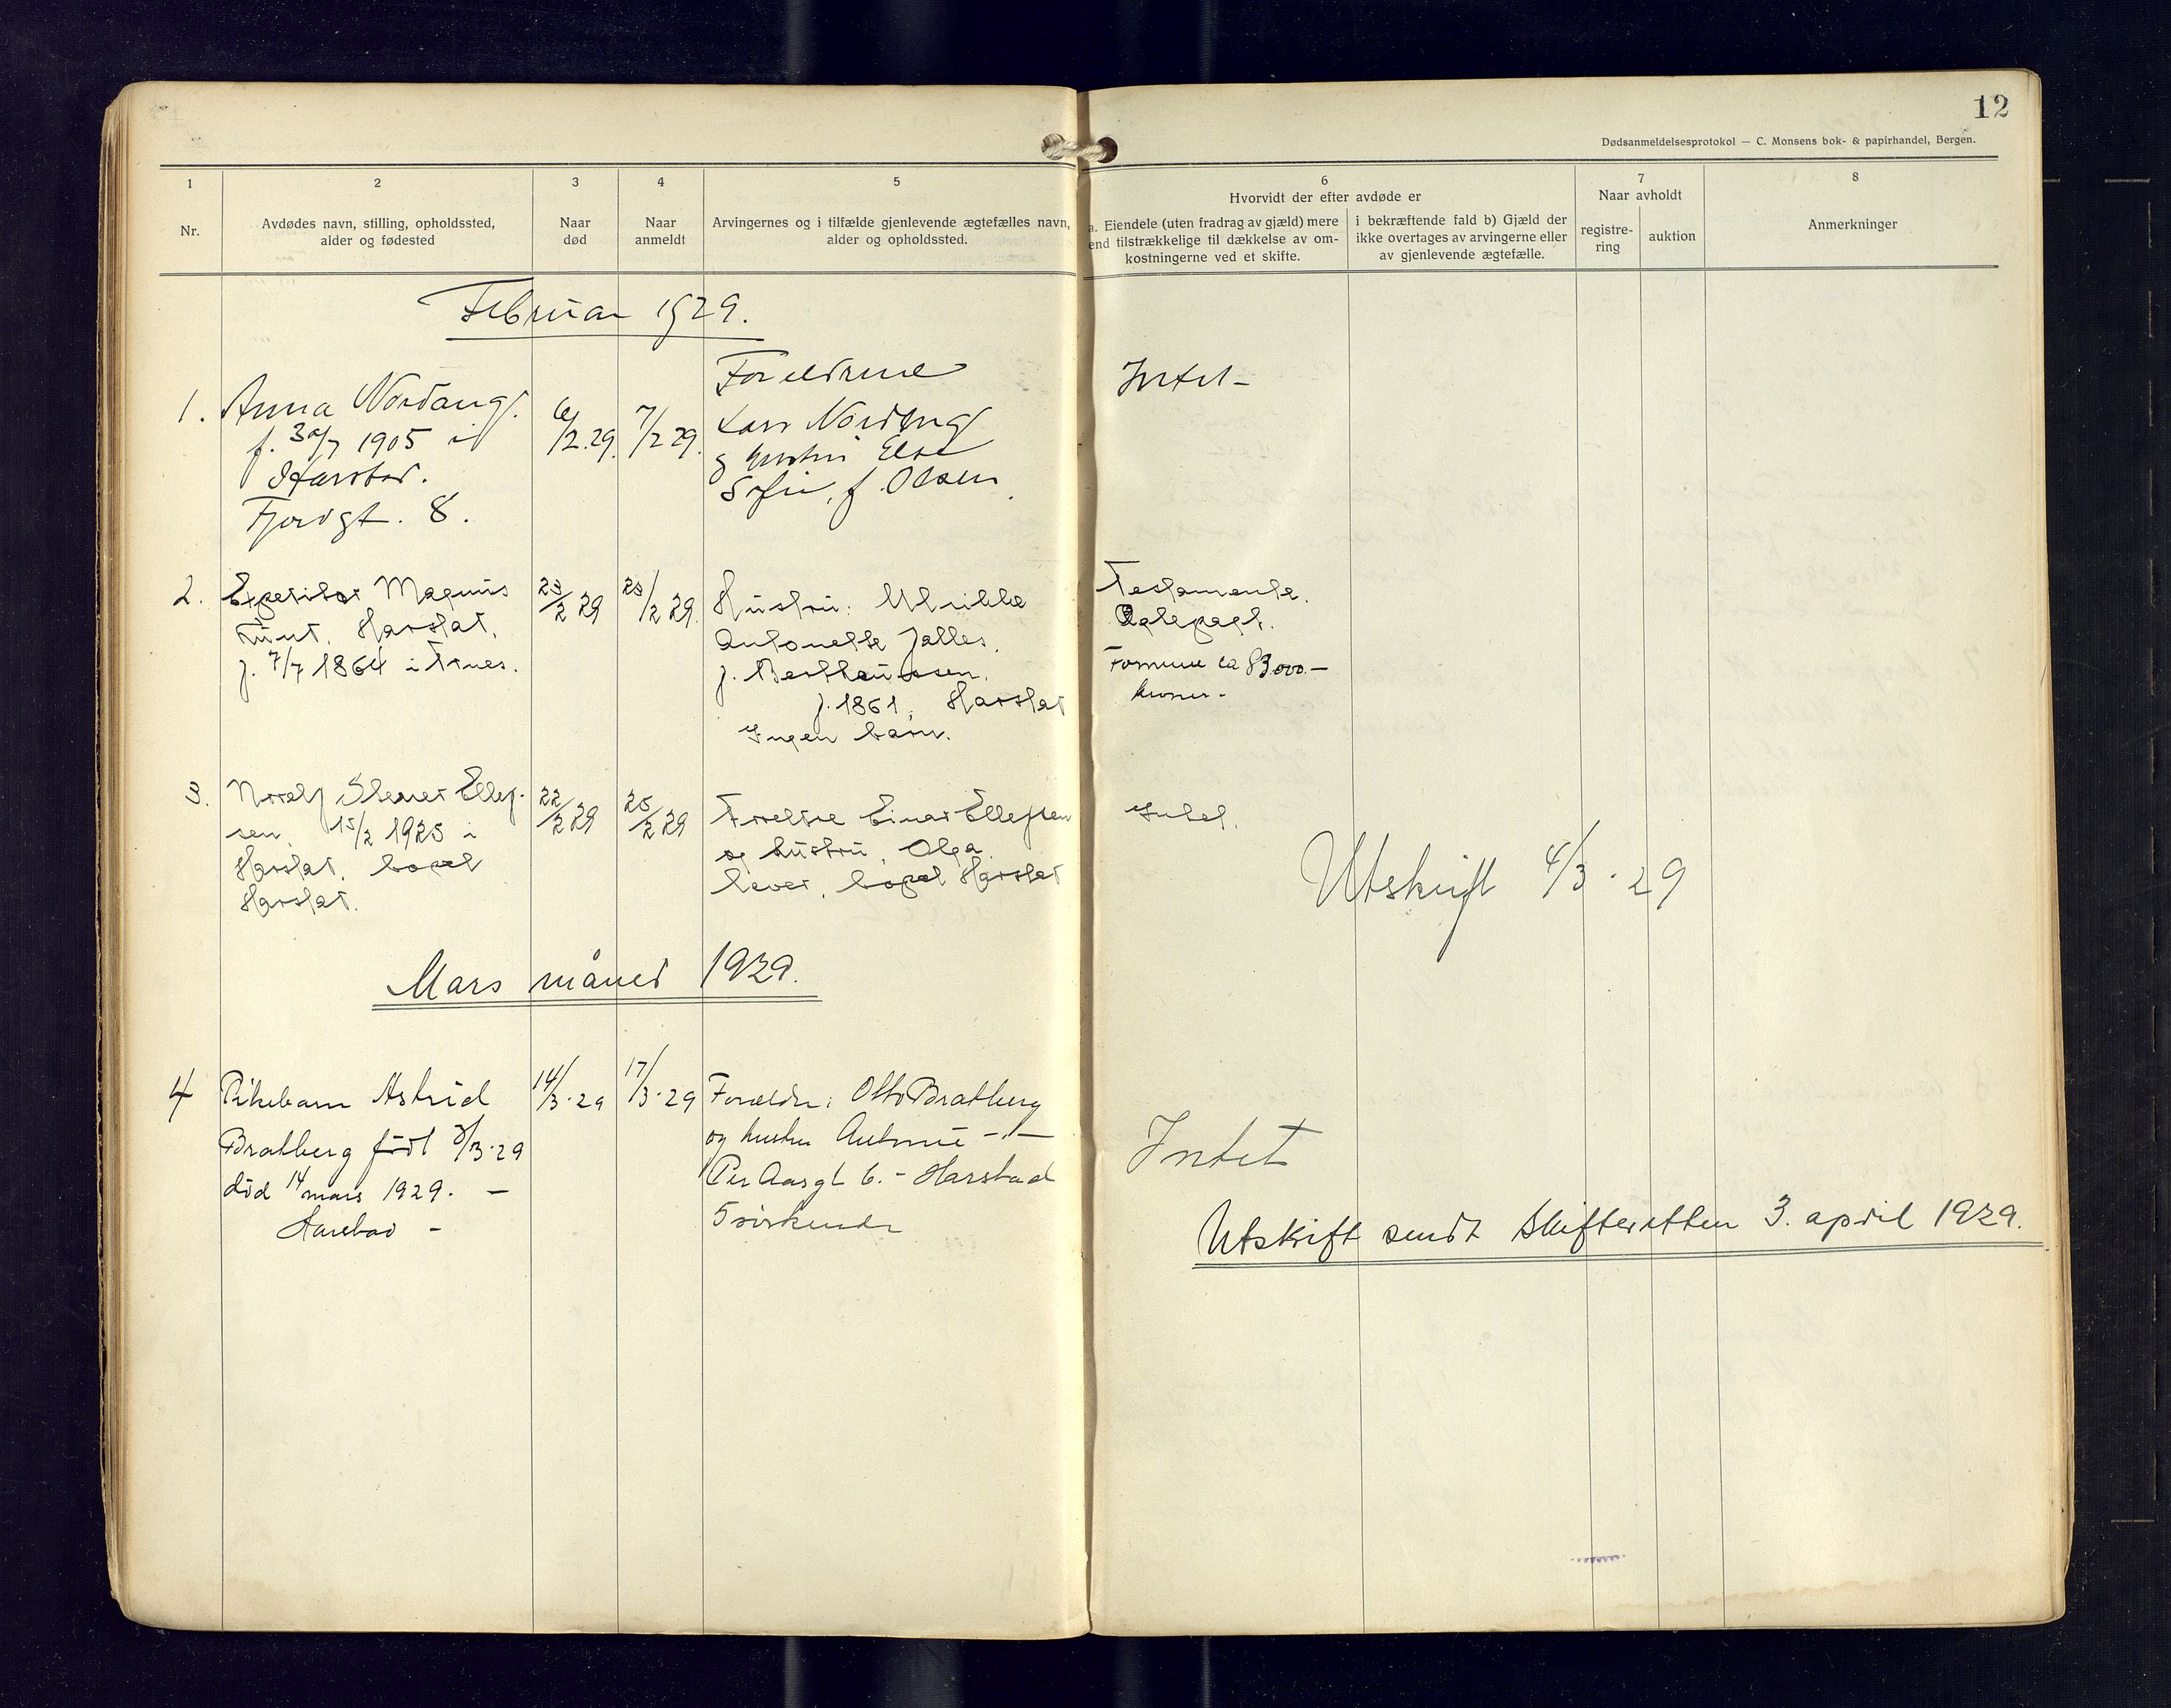 12
Dødsanmeldelsesprotokol — C. Monsens bok- & papirhandel, Bergen.
1 2 3 4 5 6 7 8
Nr.
Avdødes navn, stilling, opholdssted,
alder og fødested
Naar
død
Naar
anmeldt
Arvingernes og i tilfælde gjenlevende ægtefælles navn,
alder og opholdssted.
Hvorvidt der efter avdøde er
a. Eiendele (uten fradrag av gjæld) mere
end tilstrækkelige til dækkelse av om-
kostningerne ved et skifte.
i bekræftende fald b) Gjæld der
ikke overtages av arvingerne eller
av gjenlevende ægtefælle.
Naar avholdt
registre-
ring
auktion
Anmerkninger
Februar 1929.
1. Anna Nordang.
f. 30/7 1905 i
Harstad.
Fjordgt. 8.
6/2.29.
7/2 29.
Foreldrene
Lars Nordang
og hustru Else
Sofie, f. Olsen
Intet -
2. Expeditør Magnus
Harstad,
f. 7/7 1864 i
23/2 29
25/2 29.
Hustru: Ulrikke
Antonette
f.
f. 1861, Harstad
Ingen barn.
Testamente.
Formue ca 83000.-
kroner -
3. Steinar Ellef-
sen, 15/2 1925 i
Harstad, bopel
Harstad.
22/2 29
25/2 29
Foreldre Einar Ellefsen
og hustru, Olga
lever, bopel Harstad
Intet.
Utskrift 4/3 . 29
Mars måned 1929.
4 Pikebarn Astrid
Bratberg født /3.29
död 14 mars 1929. -
Harstad -
14/3.29
17/3.29
Forældre: Otto Bratberg
og hustru Antonie - " -
Per Aasgt 6. - Harstad
5 söskende
Intet
Utskrift sendt Skifteretten 3. april 1929.